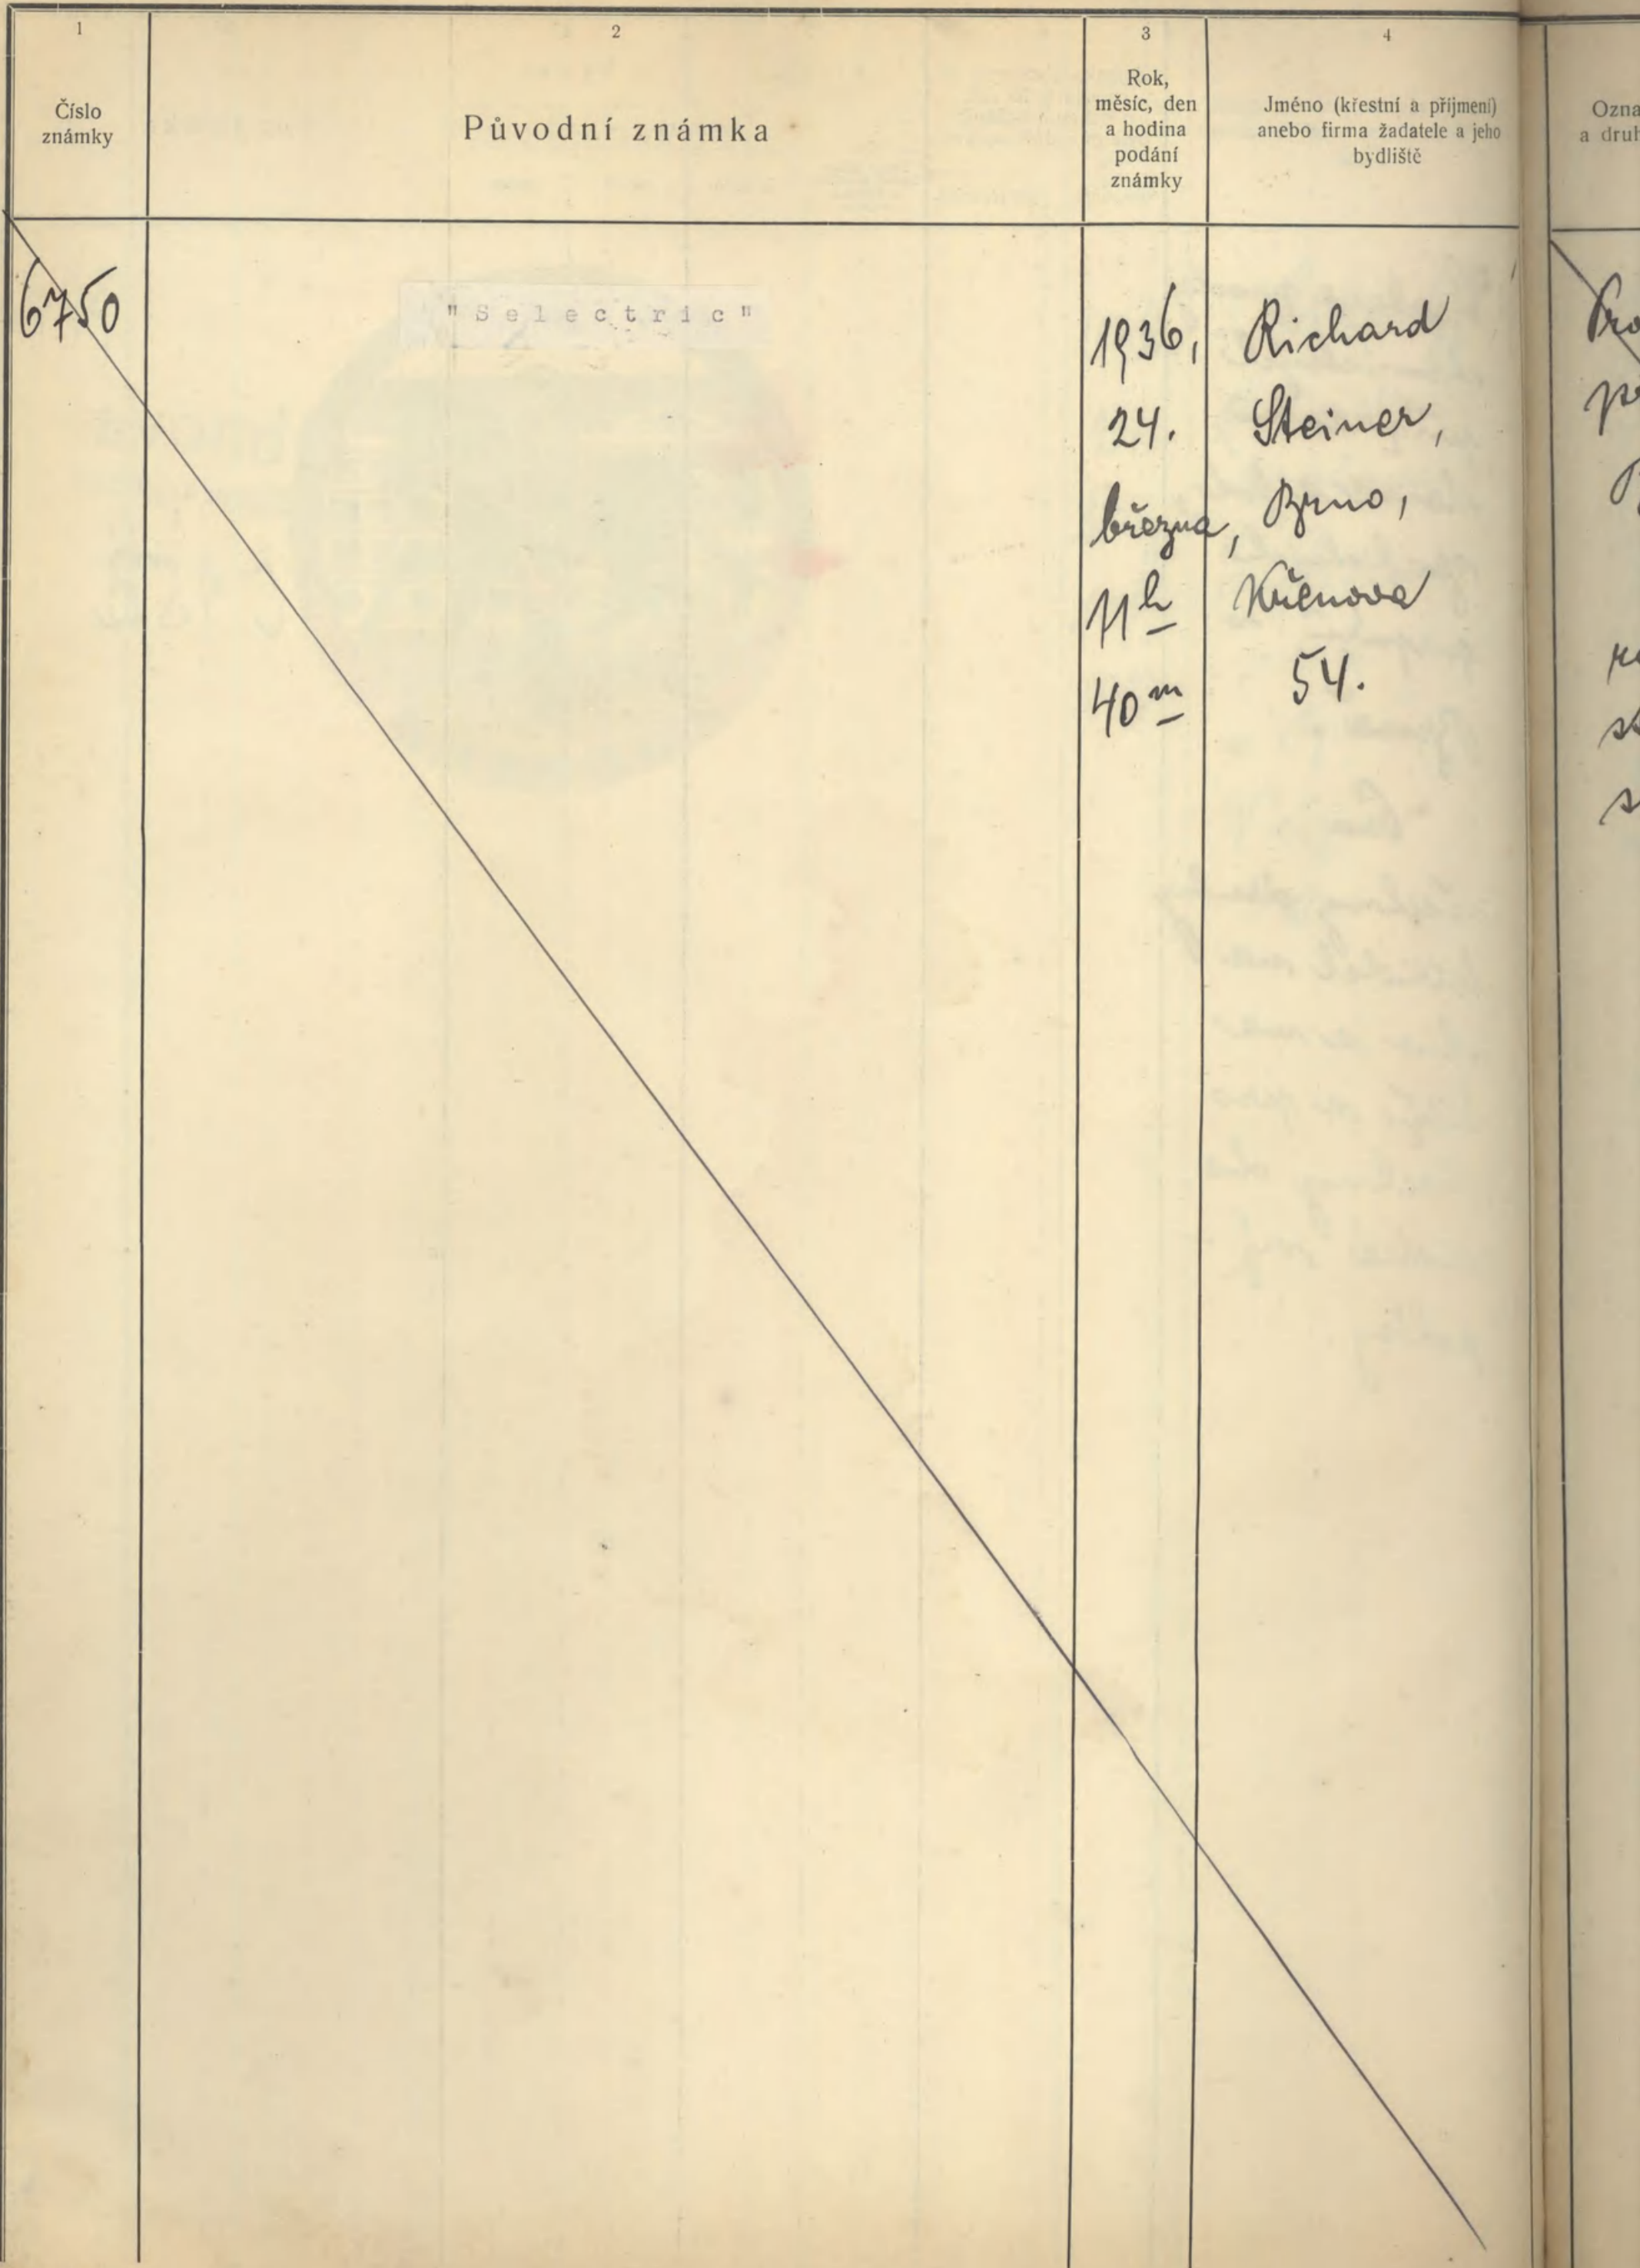 1
Číslo
známky
2
Původní známka
3
Rok,
měsíc, den
a hodina
podání
známky
4
Jméno (křestní a příjmení)
anebo firma žadatele a jeho
bydliště
Ozna
a druh
6750
"Selectric"
1936,
24.
března,
11h
40m
Richard
Steiner,
Brno,
Křenova
54.